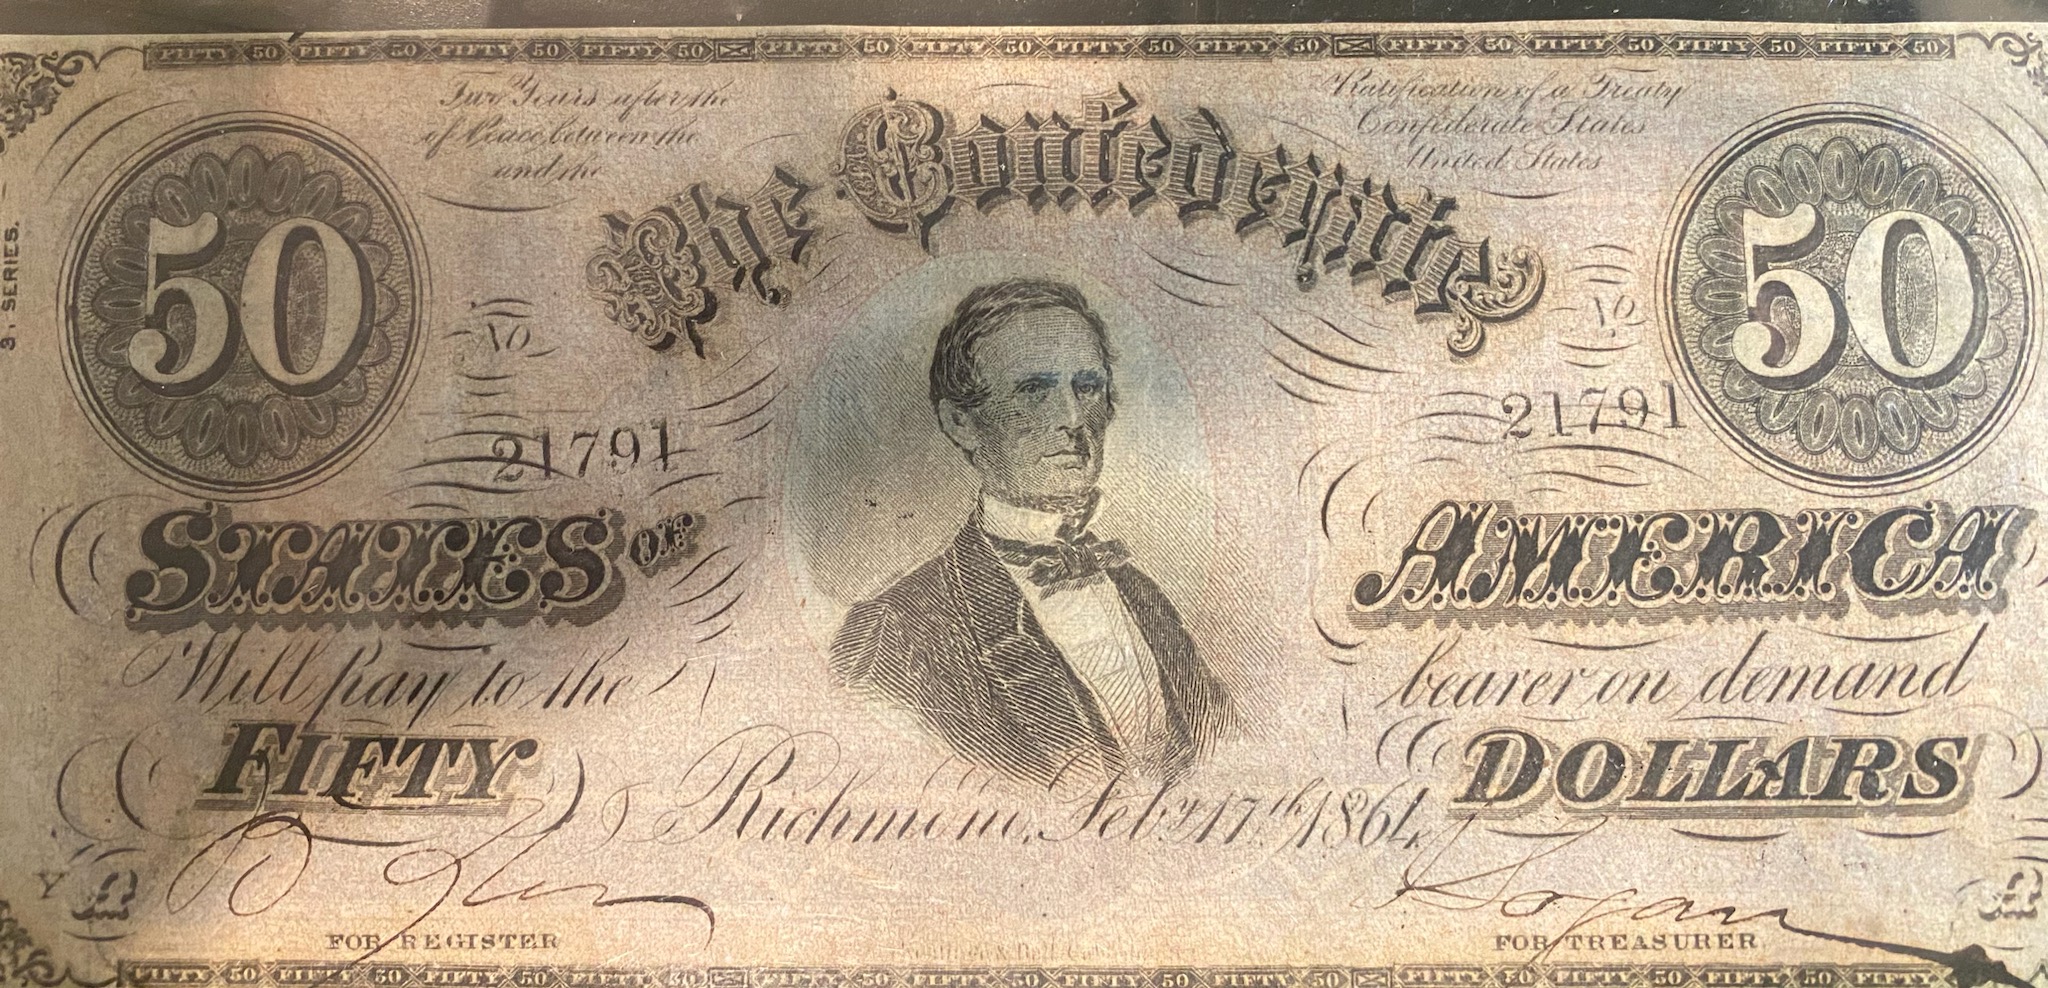 FIFTY 50 FIFTY 50 FIFTY 50 FIFTY 50 FIFTY 50 FIFTY 50 FIFTY 50 FIFTY 50 FIFTY 50 FIFTY 50 FIFTY 50 FIFTY 50
Two Years after the Ratification of a Treaty
of Peace between the Confederate States
and the United States
The Confederate
50 50
3. SERIES.
No No
21791 21791
STATES OF AMERICA
Will pay to the bearer on demand
FIFTY DOLLARS
Richmond, Feby. 17th 1864
Y
FOR REGISTER FOR TREASURER
FIFTY 50 FIFTY 50 FIFTY 50 FIFTY 50 FIFTY 50 FIFTY 50 FIFTY 50 FIFTY 50 FIFTY 50 FIFTY 50 FIFTY 50 FIFTY